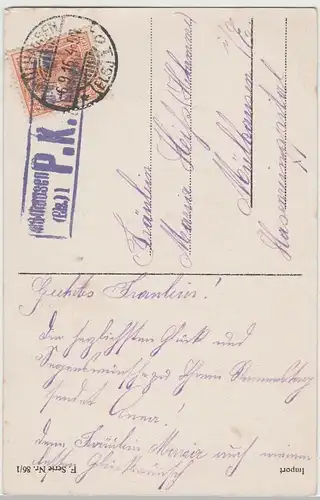 MÜLHAUSEN
6.9.16
(ELS.)
Mülhausen
(Els.) 1
P.K.
Fräulein
Maria
Mülhausen i/E
Geehrtes Fräulein!
Die herzlichsten Glück und
Segenswünsche zu Ihrem Namenstag
sendet Anna!
dem Fräulein auch meinen
besten Glückwunsch
F. Serie Nr. 86/1
Import